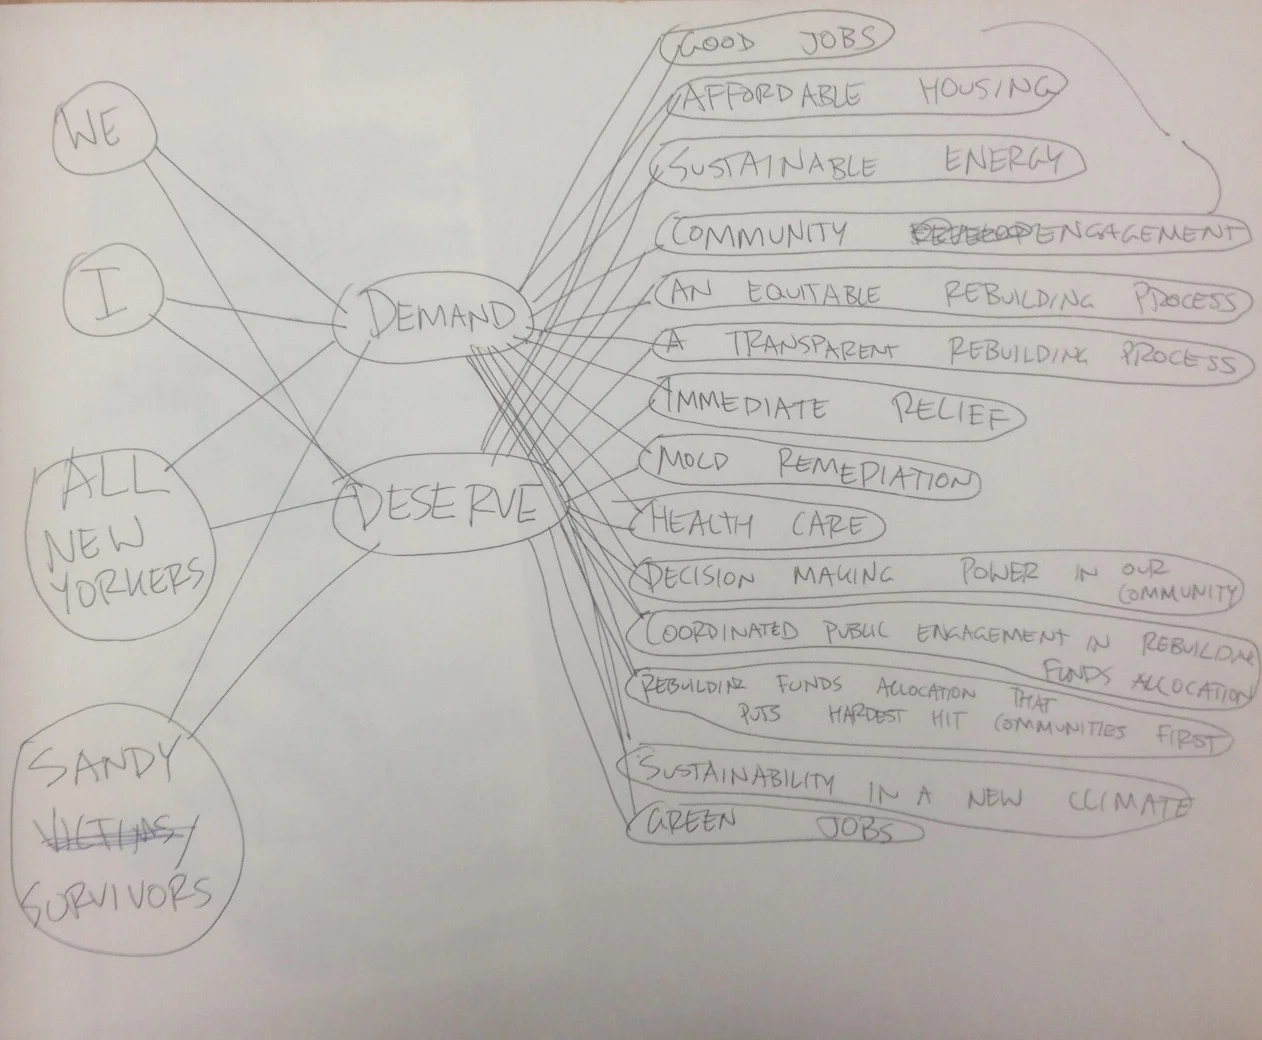 WE
I
ALL
NEW
YORKERS
SANDY
VICTIMS/
SURVIVORS
DEMAND
DESERVE
GOOD JOBS
AFFORDABLE HOUSING
SUSTAINABLE ENERGY
COMMUNITY ENGAGEMENT
AN EQUITABLE REBUILDING PROCESS
A TRANSPARENT REBUILDING PROCESS
IMMEDIATE RELIEF
MOLD REMEDIATION
HEALTH CARE
DECISION MAKING POWER IN OUR
COMMUNITY
COORDINATED PUBLIC ENGAGEMENT IN REBUILDING
FUNDS ALLOCATION
REBUILDING FUNDS ALLOCATION THAT
PUTS HARDEST HIT COMMUNITIES FIRST
SUSTAINABILITY IN A NEW CLIMATE
GREEN JOBS